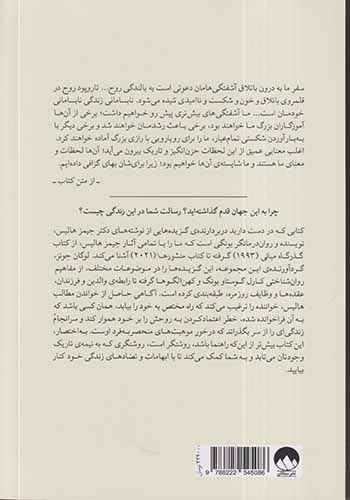 سفر ما به درون باتلاق آشفتگی‌هامان دعوتی است به بالندگی روح... تاروپود روح در
قلمروی باتلاق و خون و شکست و ناامیدی تنیده می‌شود. نابسامانی زندگی نابسامانی
خودمان است... ما آشفتگی‌های بیش‌تری پیش رو خواهیم داشت؛ برخی از آن‌ها
آموزگاران بزرگ ما خواهند بود، برخی باعث رشدمان خواهند شد و برخی دیگر با
به‌بارآوردن شکستی تمام‌عیار، ما را برای رویارویی با رازی بزرگ آماده خواهند کرد.
اغلب معنایی عمیق از این لحظات حزن‌انگیز و تاریک بیرون می‌آید؛ آن‌ها لحظات و
معنای ما هستند و ما شایسته‌ی آن‌ها خواهیم بود؛ زیرا برای‌شان بهای گزافی داده‌ایم.
ـ از متن کتاب ـ
چرا به این جهان قدم گذاشته‌اید؟ رسالت شما در این زندگی چیست؟
کتابی که در دست دارید دربردارنده‌ی گزیده‌هایی از نوشته‌های دکتر جیمز هالیس،
نویسنده و روان‌درمانگر یونگی است که ما را با تمامی آثار جیمز هالیس، از کتاب
گذرگاه میانی (۱۹۹۳) گرفته تا کتاب منشورها (۲۰۲۱) آشنا می‌کند. لوگان جونز،
گردآورنده‌ی این مجموعه، این گزیده‌ها را در موضوعات مختلف، از مفاهیم
روان‌شناختی کارل گوستاو یونگ و کهن‌الگوها گرفته تا رابطه‌ی والدین و فرزندان،
عقده‌ها و وظایف روزمره، طبقه‌بندی کرده است. آگاهی حاصل از خواندن مطالب
هالیس، خواننده را ترغیب می‌کند که راه مختص به خود را بیابد، یعنی همان کسی باشد که
به آن فراخوانده شده، خطر اعتمادکردن به روحش را بر خود هموار کند و سرانجام
زندگی‌ای را از سر بگذراند که درخور موهبت‌های منحصربه‌فرد اوست. به‌اختصار،
این کتاب بیش‌تر از این‌که راهنما باشد، روشنگر است، روشنگری که به نیمه‌ی تاریک
وجودتان می‌تابد و به شما کمک می‌کند تا با ابهامات و تضادهای زندگی خود کنار
بیایید.
9 786222 545086